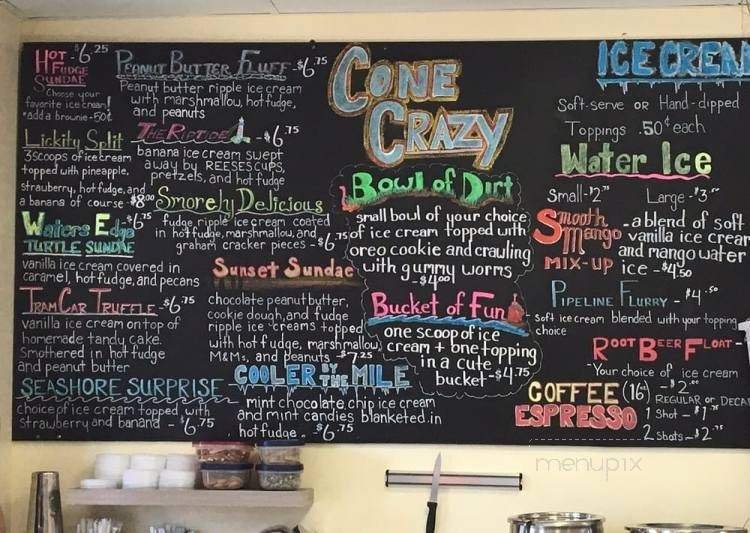 HOT FUDGE SUNDAE - $6.25
Choose your
favorite ice cream!
*add a brownie - 50¢
Lickity Split
3 scoops of ice cream
topped with pineapple,
strawberry, hot fudge, and
a banana of course - $8.00
Waters Edge - $6.75
TURTLE SUNDAE
vanilla ice cream covered in
caramel, hot fudge, and pecans
TRAM CAR TRUFFLE - $6.75
vanilla ice cream on top of
homemade tandy cake.
Smothered in hot fudge
and peanut butter
SEASHORE SURPRISE
choice of ice cream topped with
strawberry and banana - $6.75
PEANUT BUTTER FLUFF - $6.75
Peanut butter ripple ice cream
with marshmallow, hot fudge,
and peanuts
THE RIPTIDE - $6.75
banana ice cream swept
away by REESES CUPS,
pretzels, and hot fudge
Smorely Delicious
fudge ripple ice cream coated
in hot fudge, marshmallow, and
graham cracker pieces - $6.75
Sunset Sundae
chocolate peanut butter,
cookie dough, and fudge
ripple ice creams topped
with hot fudge, marshmallow,
M&Ms, and peanuts - $7.25
COOLER BY THE MILE
mint chocolate chip ice cream
and mint candies blanketed in
hot fudge - $6.75
CONE
CRAZY
Bowl of Dirt
small bowl of your choice
of ice cream topped with
oreo cookie and crawling
with gummy worms
- $4.00
Bucket of Fun
one scoop of ice
cream + one topping
in a cute
bucket - $4.75
ICE CREAM
Soft-serve OR Hand-dipped
Toppings .50¢ each
Water Ice
Small - $2 Large - $3
Smooth Mango MIX-UP - a blend of soft
vanilla ice cream
and mango water
ice - $4.50
PIPELINE FLURRY - $4.50
- Soft ice cream blended with your topping
choice
ROOT BEER FLOAT -
- Your choice of ice cream
COFFEE (16) - $2.00
REGULAR OR DECAF
ESPRESSO 1 Shot - $1.75
2 Shots - $2.75
menupix